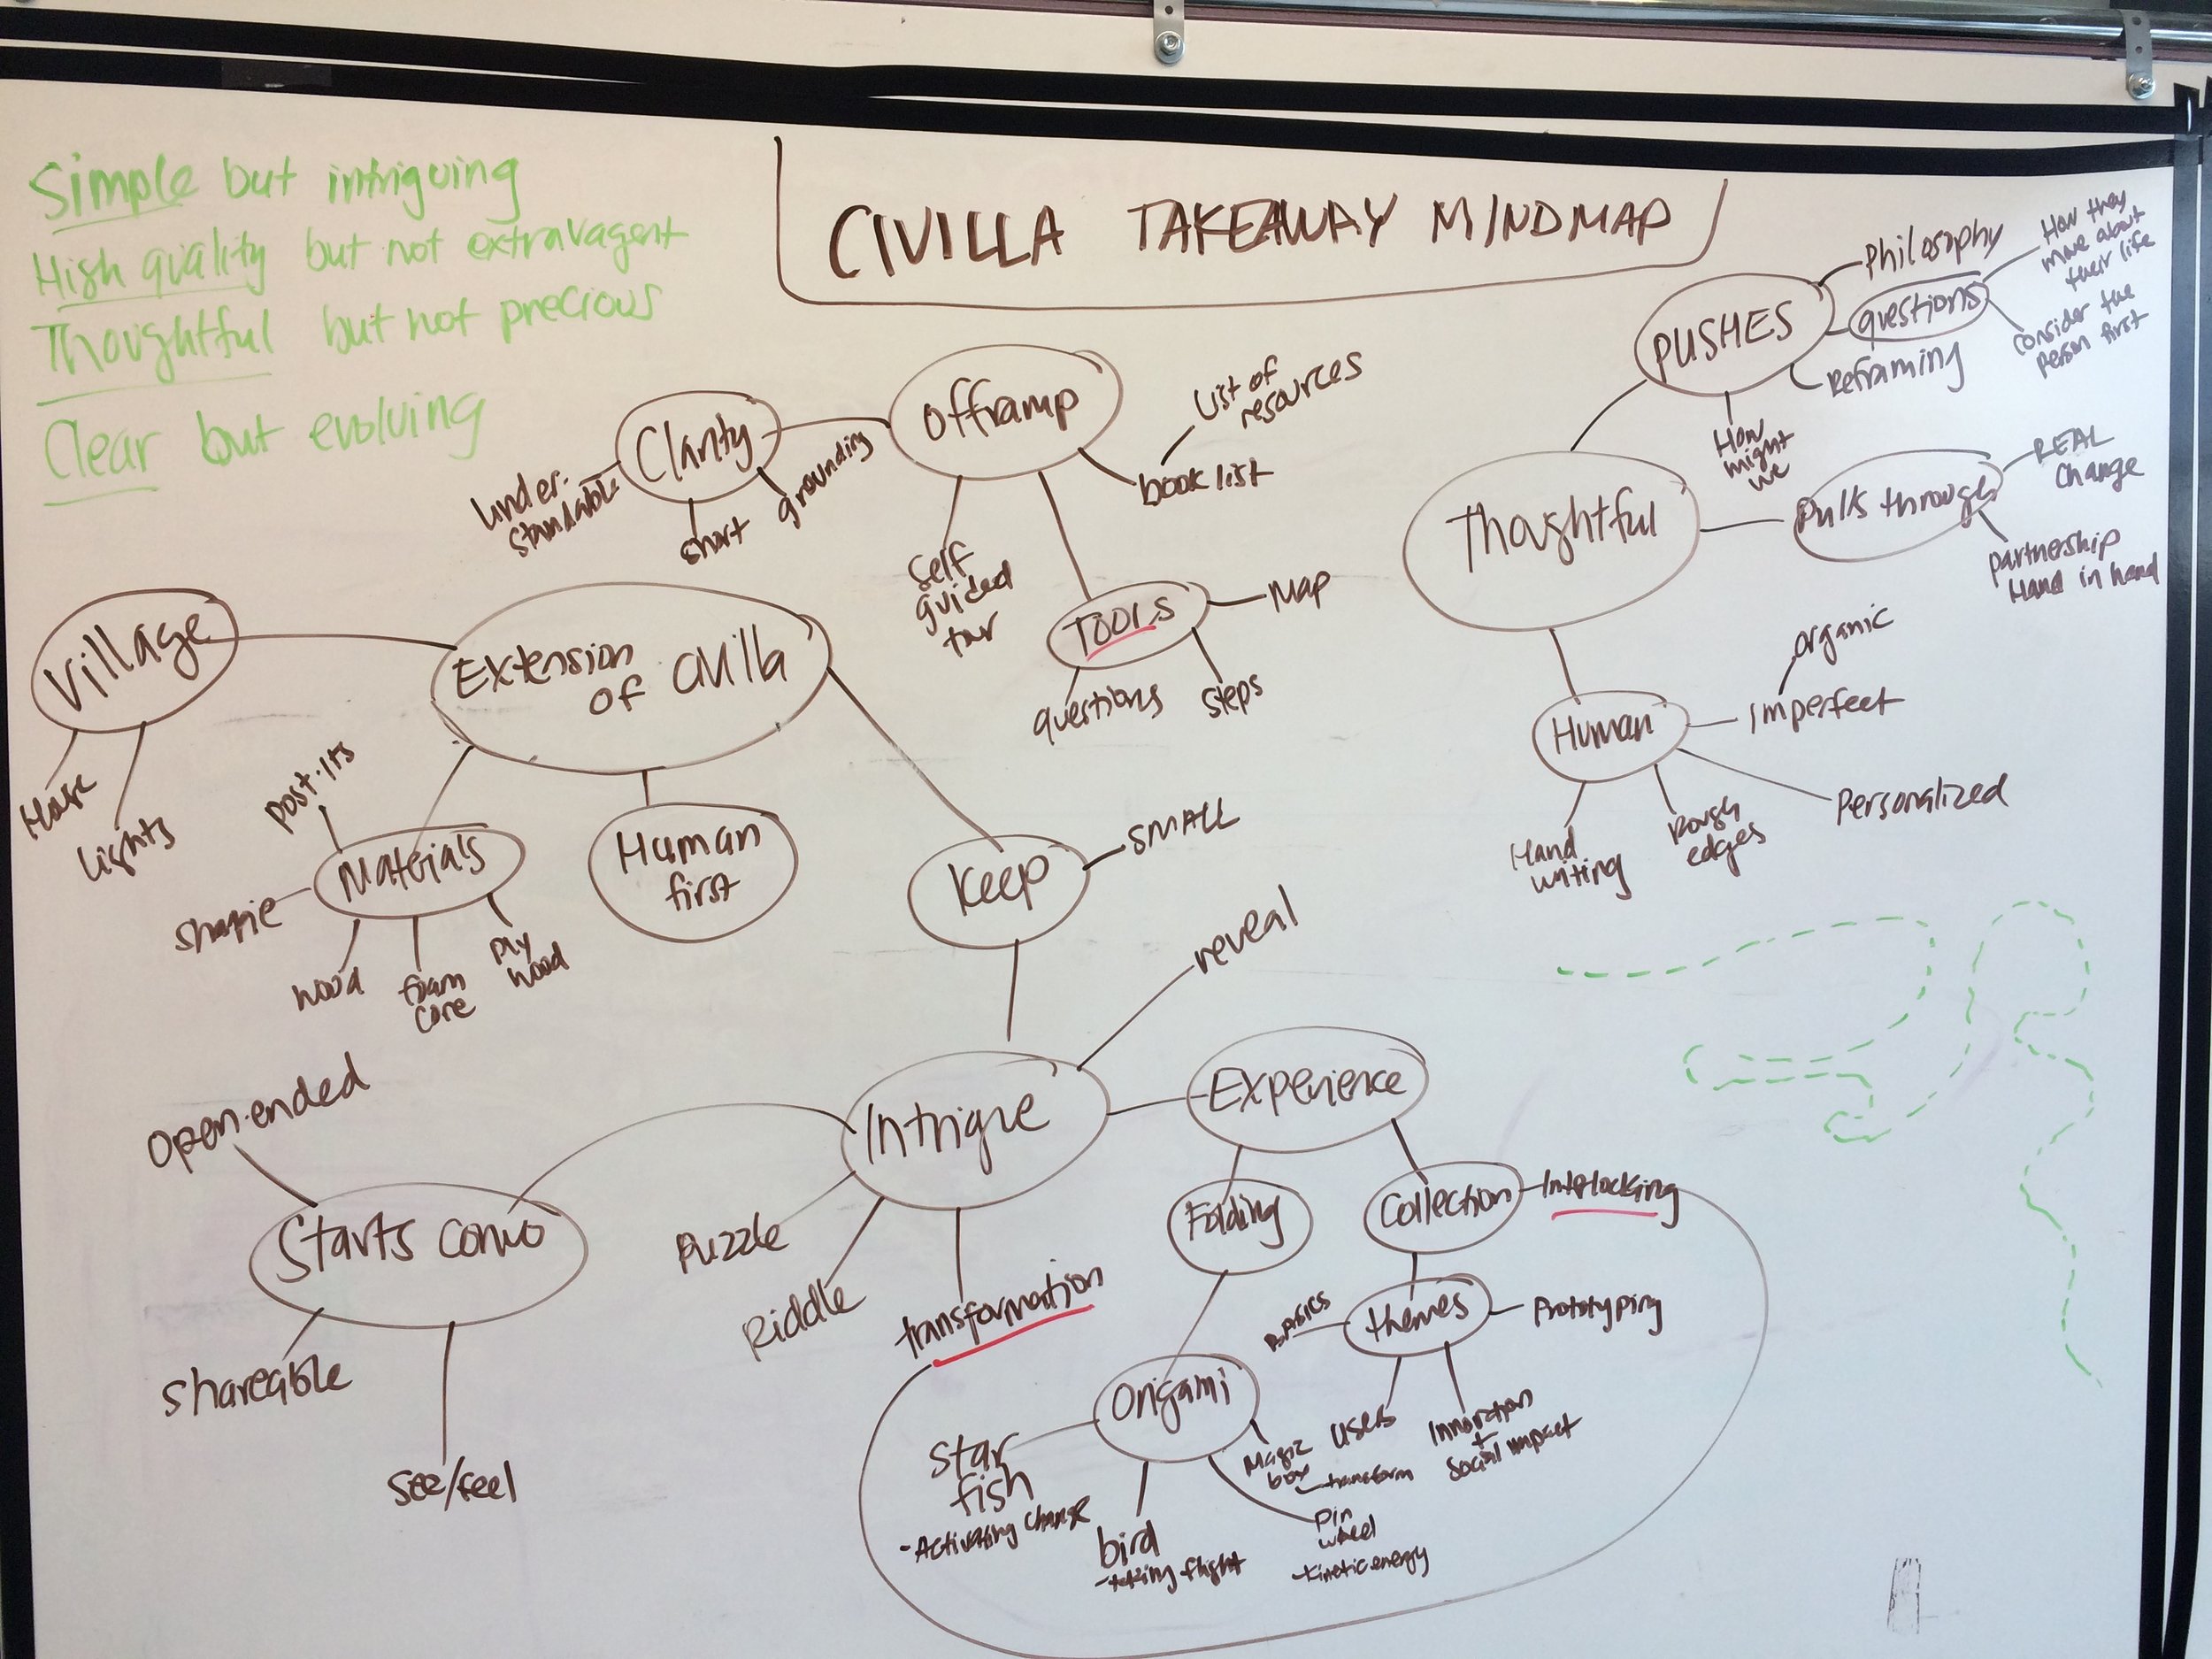 Simple but intriguing
High quality but not extravagent
Thoughtful but not precious
Clear but evolving
CIVILLA TAKEAWAY MINDMAP
PUSHES
Philosophy
questions
How they
move about
their life
consider the
person first
Reframing
How
might
we
Thoughtful
Pulls through
REAL
Change
partnership
Hand in hand
Human
organic
Imperfect
Personalized
Rough
edges
Hand
writing
Offramp
List of
resources
book list
Clarity
under-
standable
short
grounding
self
guided
tour
TOOLS
Map
questions
steps
Village
House
Lights
Extension
of civilla
Materials
post-its
sharpie
wood
foam
core
ply
wood
Human
first
keep
SMALL
Intrigue
reveal
Puzzle
Riddle
transformation
Starts convo
Open-ended
shareable
see/feel
Experience
Folding
Collection
Interlocking
themes
Basics
Prototyping
users
Innovation
+
social impact
Origami
Star
fish
- Activating change
bird
- taking flight
Magic
box
- transform
pin
wheel
- kinetic energy